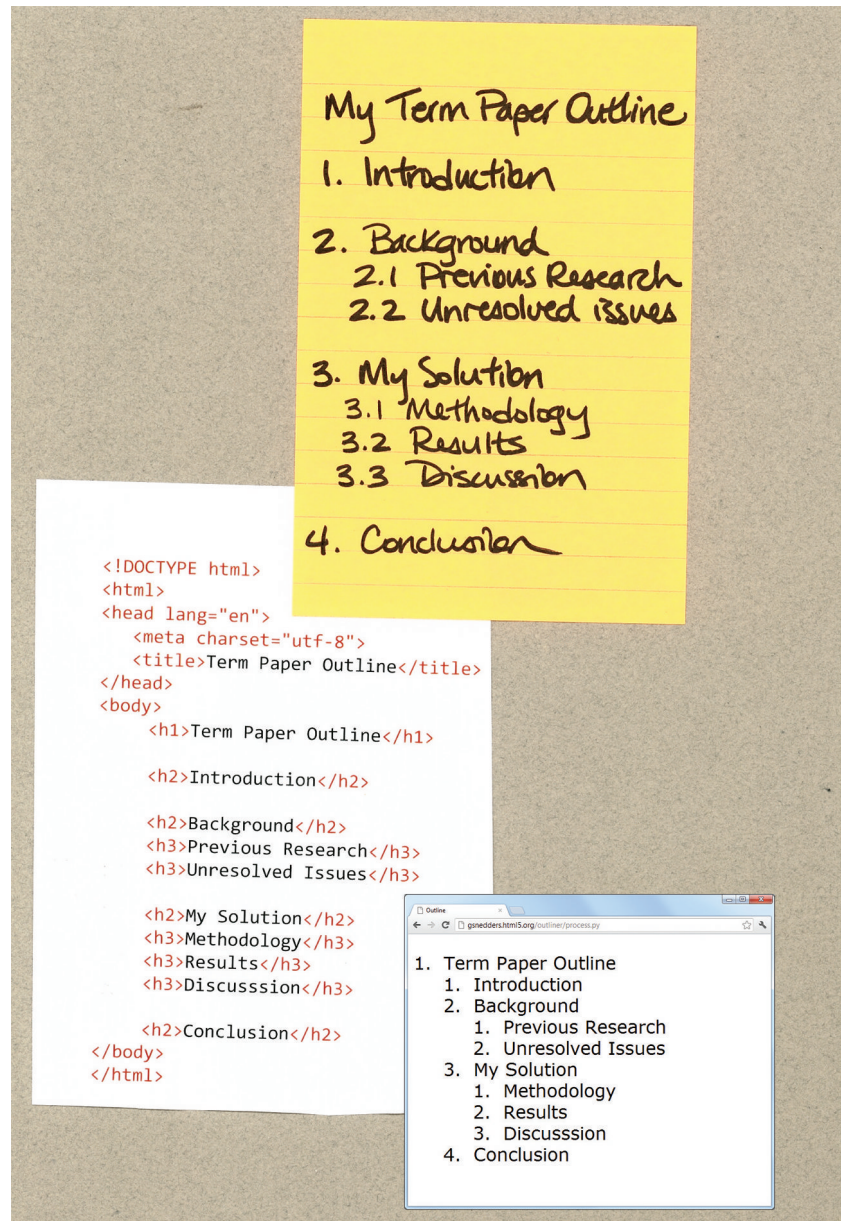 My Term Paper Outline
1. Introduction
2. Background
2.1 Previous Research
2.2 Unresolved issues
3. My Solution
3.1 Methodology
3.2 Results
3.3 Discussion
4. Conclusion
<!DOCTYPE html>
<html>
<head lang="en">
<meta charset="utf-8">
<title>Term Paper Outline</title>
</head>
<body>
<h1>Term Paper Outline</h1>
<h2>Introduction</h2>
<h2>Background</h2>
<h3>Previous Research</h3>
<h3>Unresolved Issues</h3>
<h2>My Solution</h2>
<h3>Methodology</h3>
<h3>Results</h3>
<h3>Discusssion</h3>
<h2>Conclusion</h2>
</body>
</html>
Outline
gsnedders.html5.org/outliner/process.py
1. Term Paper Outline
1. Introduction
2. Background
1. Previous Research
2. Unresolved Issues
3. My Solution
1. Methodology
2. Results
3. Discusssion
4. Conclusion